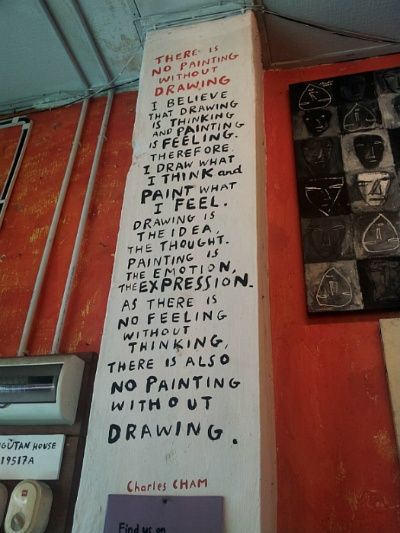 THERE IS
NO PAINTING
WITHOUT
DRAWING
I BELIEVE
THAT DRAWING
IS THINKING
AND PAINTING
IS FEELING.
THEREFORE.
I DRAW WHAT
I THINK and
PAINT WHAT
I FEEL.
DRAWING IS
THE IDEA,
THE THOUGHT.
PAINTING IS
THE EMOTION,
THE EXPRESSION.
AS THERE IS
NO FEELING
WITHOUT
THINKING,
THERE IS ALSO
NO PAINTING
WITHOUT
DRAWING.
Charles CHAM
Find us on
GUTAN HOUSE
19517A